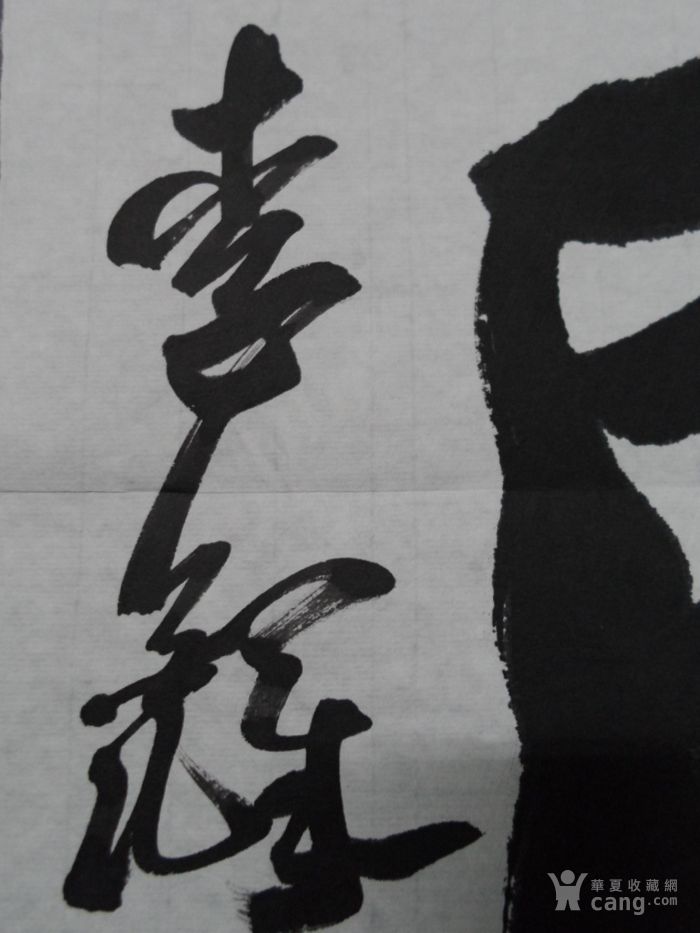 李辉
華夏收藏網
cang.com